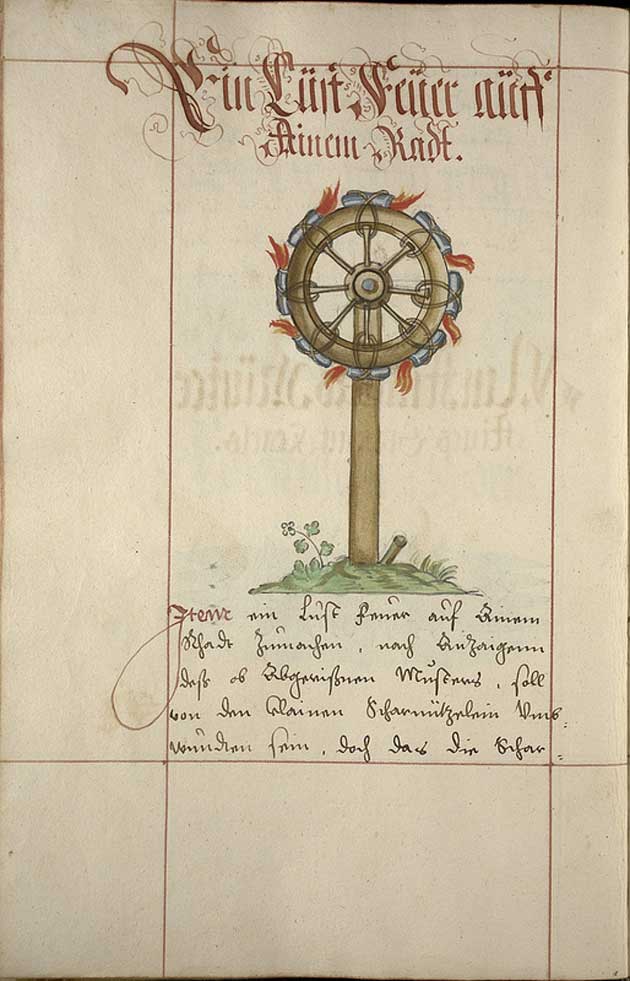 Ein Lüst Feüer aüff
Ainem Radt.
Item ein Lust Feuer auf Ainem
Rhadt Zumachen, nach Anzaigenn
deß ob Abgerißnen Musters, soll
von den Clainen Scharmützelein Vmb,
wunden sein, doch das die Schar„